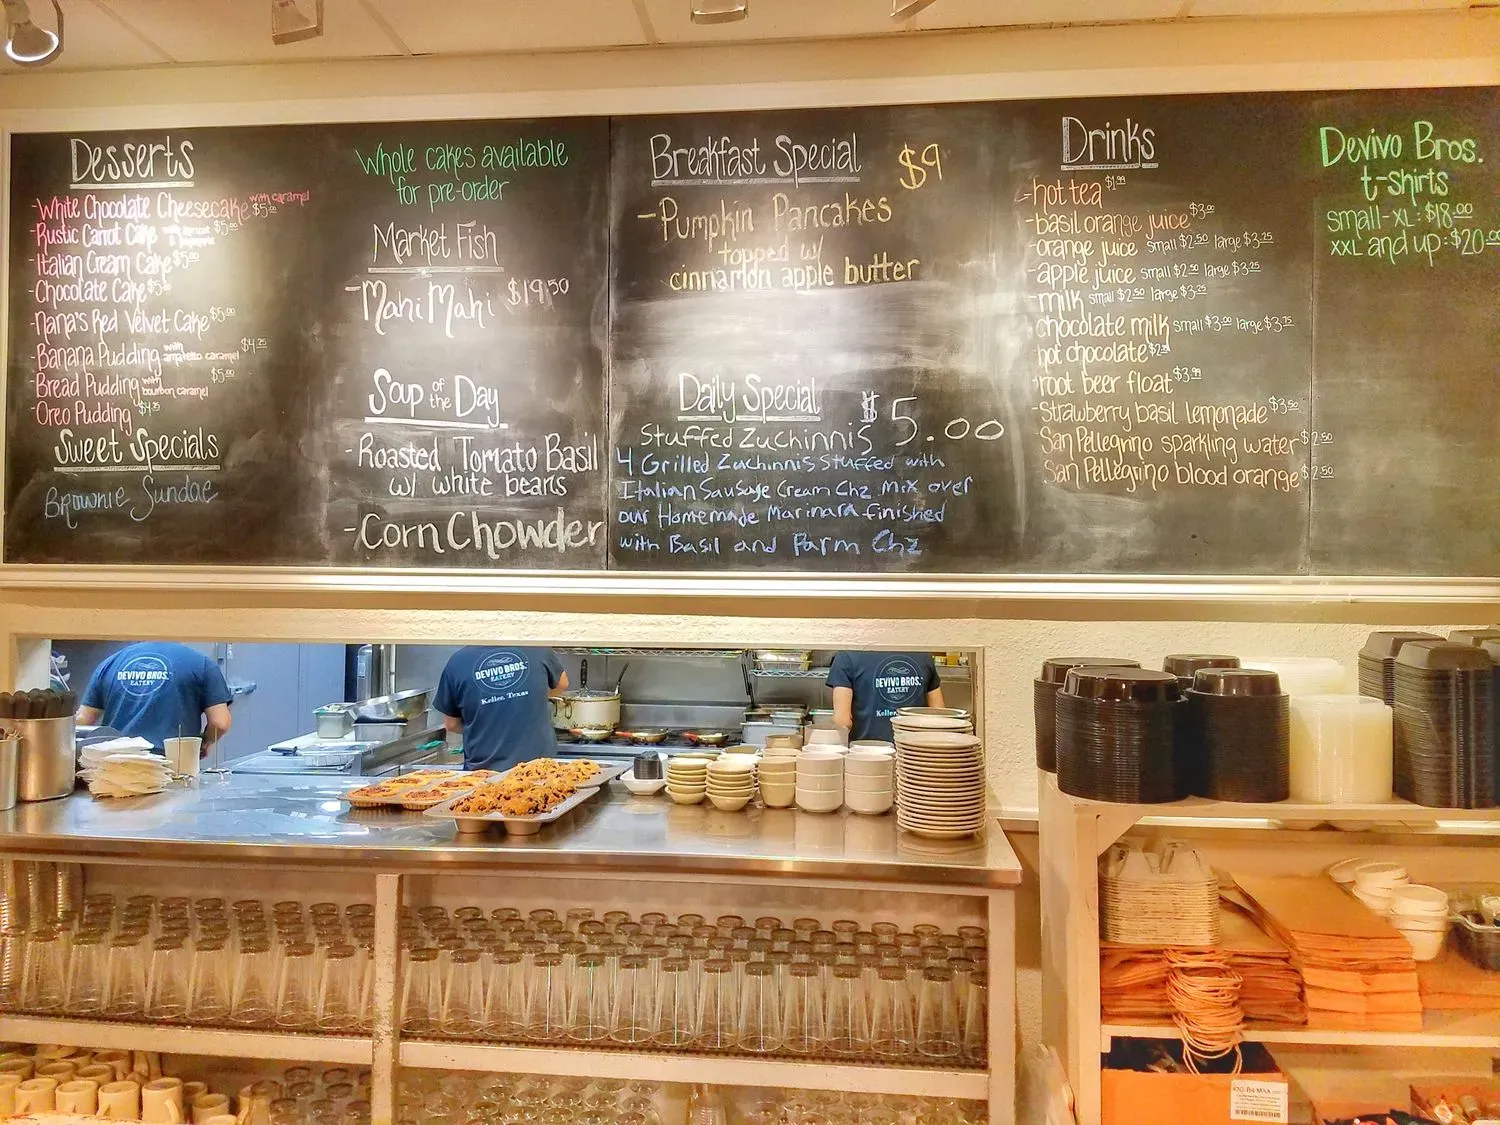 Desserts
-White Chocolate Cheesecake with caramel $5.00
-Rustic Carrot Cake $5.00
-Italian Cream Cake $5.00
-Chocolate Cake $5.00
-Nana's Red Velvet Cake $5.00
-Banana Pudding with amaretto caramel $4.25
-Bread Pudding with bourbon caramel $5.00
-Oreo Pudding $4.25
Sweet Specials
Brownie Sundae
Whole cakes available
for pre-order
Market Fish
-Mahi Mahi $19.50
Soup of the Day
-Roasted Tomato Basil
w/ white beans
-Corn Chowder
Breakfast Special $9
-Pumpkin Pancakes
topped w/
cinnamon apple butter
Daily Special $5.00
Stuffed Zuchinnis
4 Grilled Zuchinnis Stuffed with
Italian Sausage Cream Chz Mix over
our Homemade Marinara finished
with Basil and Parm Chz
Drinks
-hot tea $1.99
-basil orange juice $3.00
-orange juice small $2.50 large $3.25
-apple juice small $2.50 large $3.25
-milk small $2.50 large $3.25
-chocolate milk small $3.00 large $3.75
-hot chocolate
-root beer float $3.99
-strawberry basil lemonade $3.50
San Pellegrino sparkling water $2.50
San Pellegrino blood orange $2.50
Devivo Bros.
t-shirts
small-XL: $18.00
XXL and up: $20.00
DEVIVO BROS.
EATERY
DEVIVO BROS.
EATERY
Keller, Texas
DEVIVO BROS.
EATERY
Keller